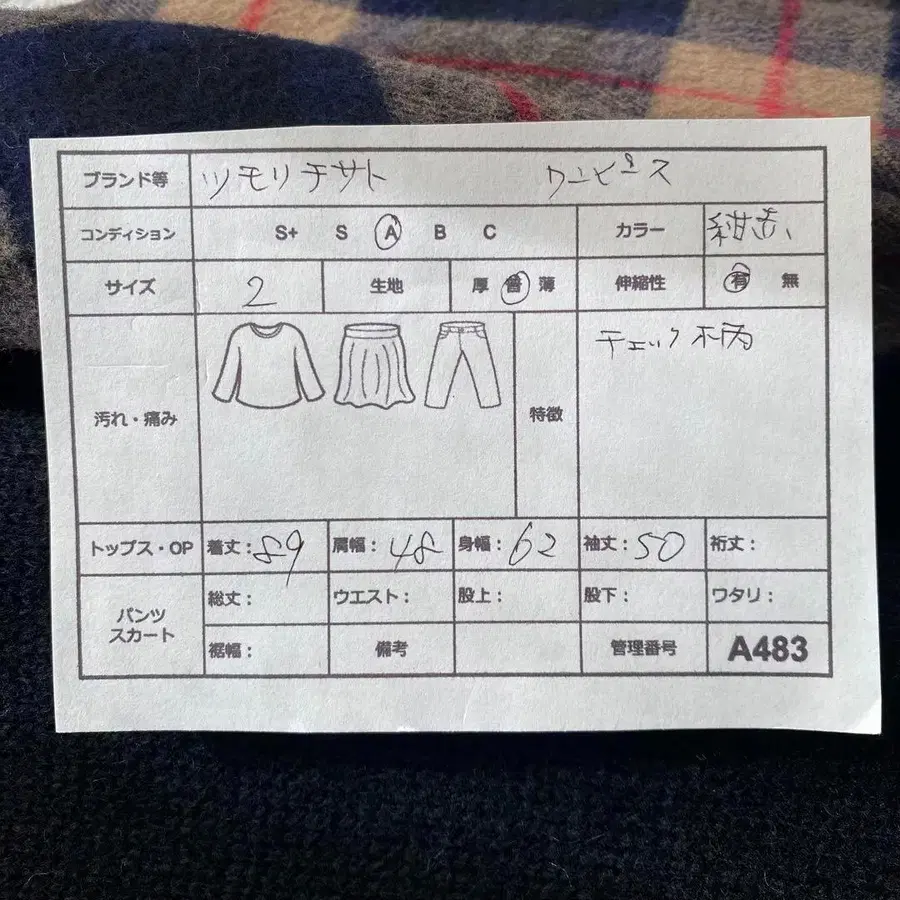 ブランド等 ツモリチサト ワンピース
コンディション S+ S A B C カラー 紺赤、
サイズ 2 生地 厚 普 薄 伸縮性 有 無
汚れ・痛み 特徴 チェック柄
トップス・OP 着丈：89 肩幅：48 身幅：62 袖丈：50 裄丈：
パンツ スカート 総丈： ウエスト： 股上： 股下： ワタリ：
裾幅： 備考 管理番号 A483